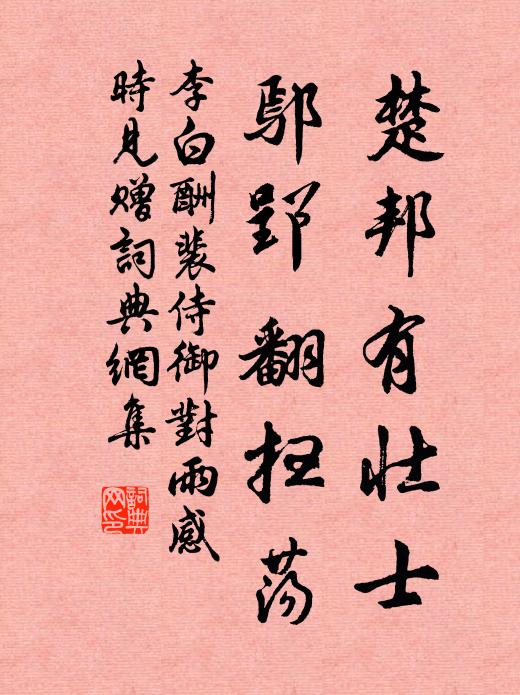 楚邦有壮士
鄢郢翻扫荡
李白酬裴侍御對雨感
時見赠詞典網集
詞典
网印